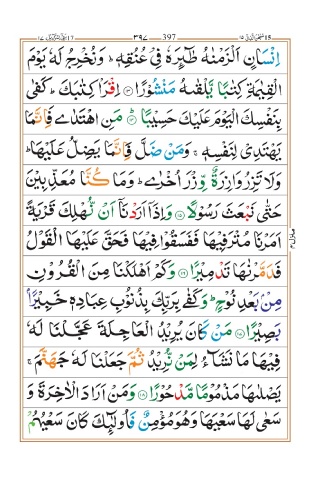 بنی اسرآءیل ١٧ ٣٩٧ 397 سبحٰن الذی ١٥
اِنْسَانٍ اَلْزَمْنٰهُ طٰٓئِرَهٗ فِیْ عُنُقِهٖ ؕ وَنُخْرِجُ لَهٗ یَوْمَ
الْقِیٰمَةِ كِتٰبًا یَّلْقٰىهُ مَنْشُوْرًا ﴿۱۳﴾ اِقْرَاْ كِتٰبَكَ ؕ كَفٰی
بِنَفْسِكَ الْیَوْمَ عَلَیْكَ حَسِیْبًا ﴿۱۴﴾ مَنِ اهْتَدٰی فَاِنَّمَا
یَهْتَدِیْ لِنَفْسِهٖ ۚ وَمَنْ ضَلَّ فَاِنَّمَا یَضِلُّ عَلَیْهَا ؕ
وَلَا تَزِرُ وَازِرَةٌ وِّزْرَ اُخْرٰی ؕ وَمَا كُنَّا مُعَذِّبِیْنَ
حَتّٰی نَبْعَثَ رَسُوْلًا ﴿۱۵﴾ وَاِذَاۤ اَرَدْنَاۤ اَنْ نُّهْلِكَ قَرْیَةً
اَمَرْنَا مُتْرَفِیْهَا فَفَسَقُوْا فِیْهَا فَحَقَّ عَلَیْهَا الْقَوْلُ
فَدَمَّرْنٰهَا تَدْمِیْرًا ﴿۱۶﴾ وَكَمْ اَهْلَكْنَا مِنَ الْقُرُوْنِ
مِنْۢ بَعْدِ نُوْحٍ ؕ وَكَفٰی بِرَبِّكَ بِذُنُوْبِ عِبَادِهٖ خَبِیْرًۢا
بَصِیْرًا ﴿۱۷﴾ مَنْ كَانَ یُرِیْدُ الْعَاجِلَةَ عَجَّلْنَا لَهٗ
فِیْهَا مَا نَشَآءُ لِمَنْ نُّرِیْدُ ثُمَّ جَعَلْنَا لَهٗ جَهَنَّمَ ۚ
یَصْلٰىهَا مَذْمُوْمًا مَّدْحُوْرًا ﴿۱۸﴾ وَمَنْ اَرَادَ الْاٰخِرَةَ وَ
سَعٰی لَهَا سَعْیَهَا وَهُوَ مُؤْمِنٌ فَاُولٰٓئِكَ كَانَ سَعْیُهُمْ